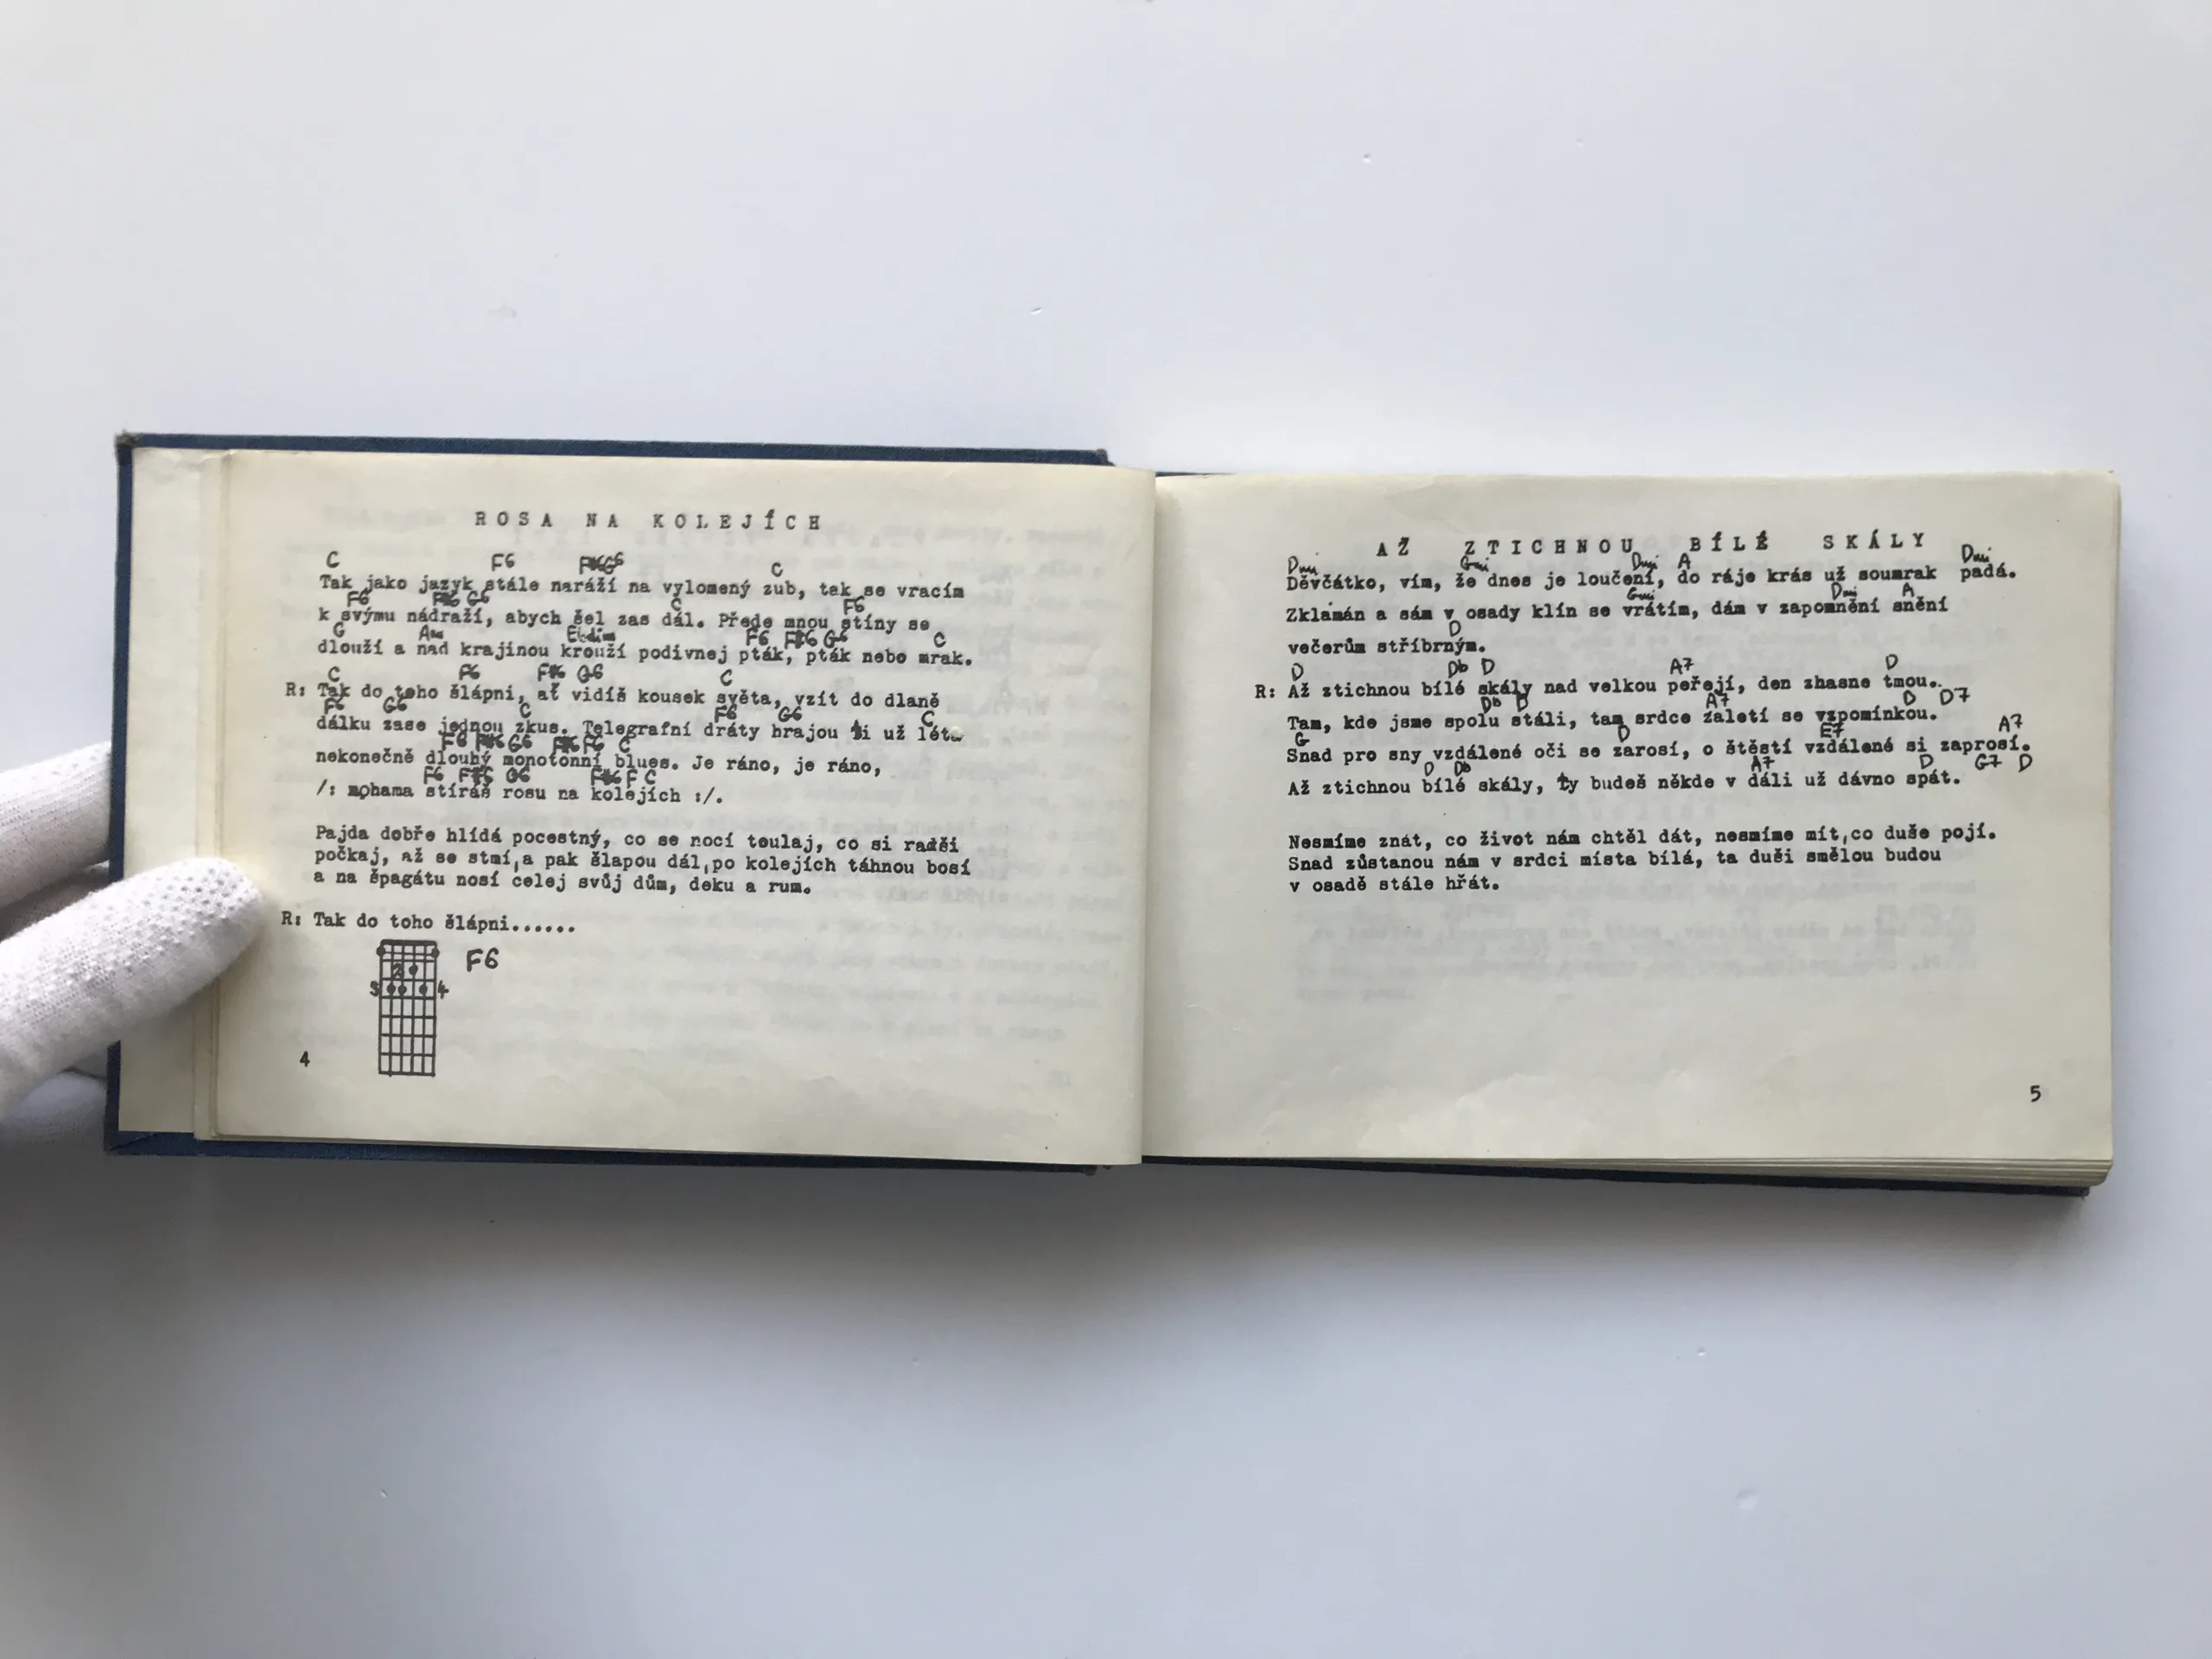 ROSA NA KOLEJÍCH
C F6 F#6 G6 C
Tak jako jazyk stále naráží na vylomený zub, tak se vracím
F6 F#6 G6 C F6
k svýmu nádraží, abych šel zas dál. Přede mnou stíny se
G Am Ebdim F6 F#6 G6 C
dlouží a nad krajinou krouží podivnej pták, pták nebo mrak.
C F6 F#6 G6 C
R: Tak do toho šlápni, ať vidíš kousek světa, vzít do dlaně
F6 G6 C F6 G6 C
dálku zase jednou zkus. Telegrafní dráty hrajou ti už léta
F6 F#6 G6 F#6 F6 C
nekonečně dlouhý monotónní blues. Je ráno, je ráno,
F6 F#6 G6 F#6 F C
/: nohama stíráš rosu na kolejích :/.
Pajda dobře hlídá pocestný, co se nocí toulaj, co si radši
počkaj, až se stmí, a pak šlapou dál, po kolejích táhnou bosí
a na špagátu nosí celej svůj dům, deku a rum.
R: Tak do toho šlápni......
F6
2
3 4
4
AŽ ZTICHNOU BÍLÉ SKÁLY
Dmi Gmi Dmi A Dmi
Děvčátko, vím, že dnes je loučení, do ráje krás už soumrak padá.
Gmi Dmi A
Zklamán a sám v osady klín se vrátím, dám v zapomnění snění
D
večerům stříbrným.
D Db D A7 D
R: Až ztichnou bílé skály nad velkou peřejí, den zhasne tmou..
Db D A7 D D7
Tam, kde jsme spolu stáli, tam srdce zaletí se vzpomínkou.
G D E7 A7
Snad pro sny vzdálené oči se zarosí, o štěstí vzdálené si zaprosí.
D Db A7 D G7 D
Až ztichnou bílé skály, ty budeš někde v dáli už dávno spát.
Nesmíme znát, co život nám chtěl dát, nesmíme mít, co duše pojí.
Snad zůstanou nám v srdci místa bílá, ta duši smělou budou
v osadě stále hřát.
5